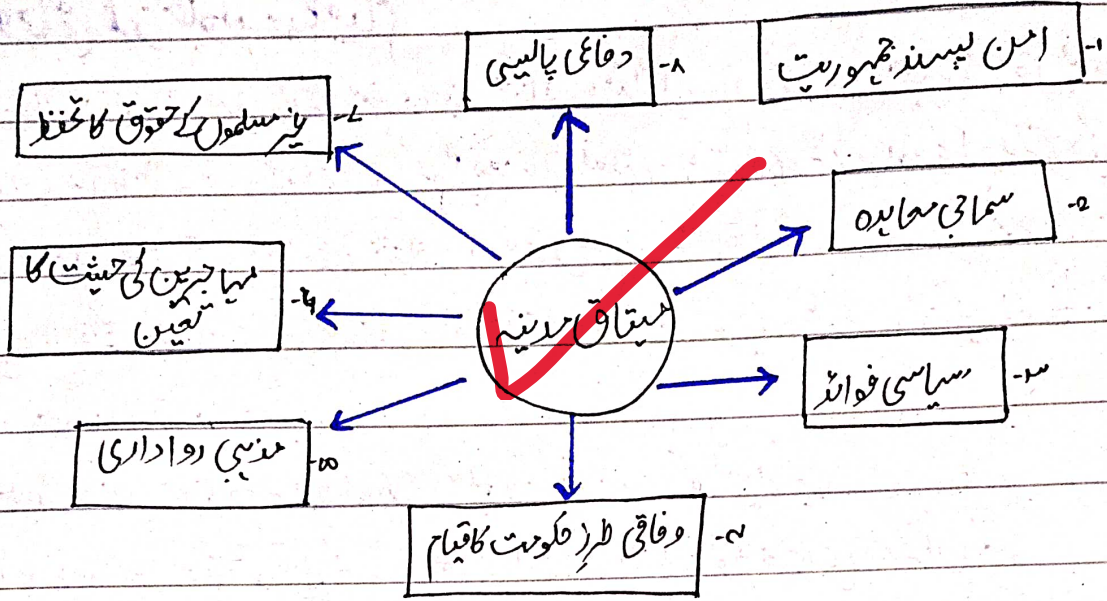 ۱- امن پسند جمہوریت
۲- سماجی معاہدہ
۳- سیاسی فوائد
۴- وفاقی طرز حکومت کا قیام
۵- مذہبی رواداری
۶- مہاجرین کی حیثیت کا
تعین
۷- غیر مسلموں کے حقوق کا تحفظ
۸- دفاعی پالیسی
میثاق مدینہ